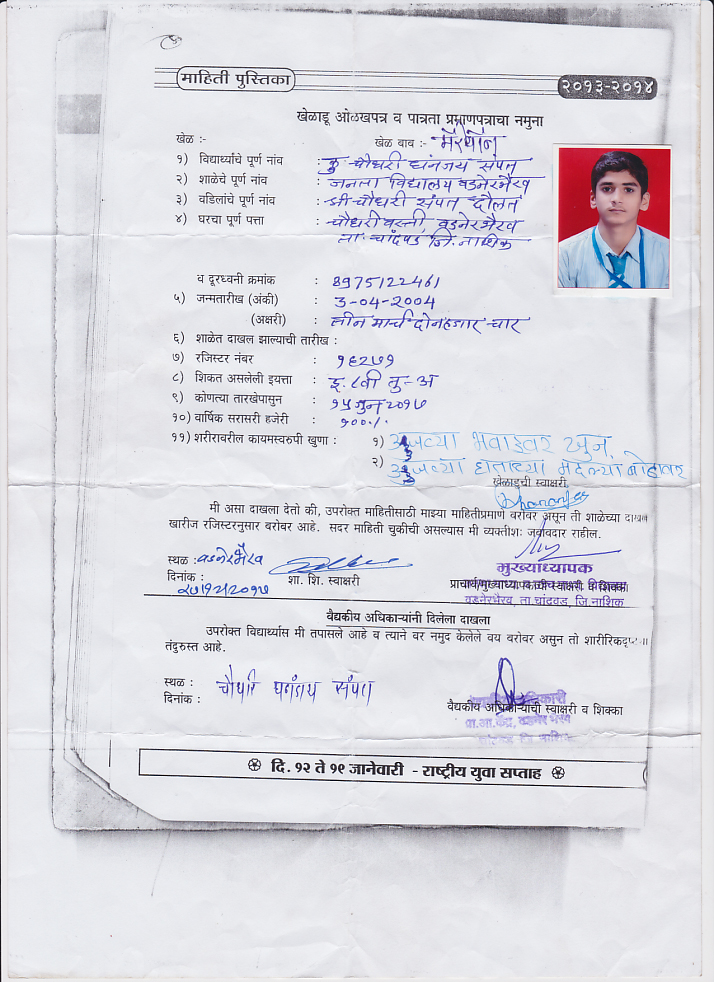 माहिती पुस्तिका
२०१३-२०१४
खेळाडू ओळखपत्र व पात्रता प्रमाणपत्राचा नमुना
खेळ :- खेळ बाब :- मॅरेथॉन
१) विद्यार्थ्याचे पूर्ण नांव : कु. चौधरी धनंजय संपत
२) शाळेचे पूर्ण नांव : जनता विद्यालय वडनेरभैरव
३) वडिलांचे पूर्ण नांव : श्री चौधरी संपत दौलत
४) घरचा पूर्ण पत्ता : चौधरी वस्ती, वडनेरभैरव
ता. चांदवड जि. नाशिक
व दूरध्वनी क्रमांक : 8975122461
५) जन्मतारीख (अंकी) : 3-04-2004
(अक्षरी) : तीन मार्च दोन हजार चार
६) शाळेत दाखल झाल्याची तारीख :
७) रजिस्टर नंबर : १६२७१
८) शिकत असलेली इयत्ता : इ. ८वी तु - अ
९) कोणत्या तारखेपासुन : १५ जुन २०१७
१०) वार्षिक सरासरी हजेरी : १००%
११) शरीरावरील कायमस्वरुपी खुणा : १) उजव्या खुन.
२) उजव्या हाताच्या बोटावर
खेळाडूची स्वाक्षरी
मी असा दाखला देतो की, उपरोक्त माहितीसाठी माझ्या माहितीप्रमाणे बरोबर असून ती शाळेच्या दाखल
खारीज रजिस्टरनुसार बरोबर आहे. सदर माहिती चुकीची असल्यास मी व्यक्तीशः जबाबदार राहील.
स्थळ : वडनेरभैरव
दिनांक : शा. शि. स्वाक्षरी
मुख्याध्यापक
वडनेरभैरव, ता चांदवड, जि नाशिक
वैद्यकीय अधिकाऱ्यांनी दिलेला दाखला
उपरोक्त विद्यार्थ्यास मी तपासले आहे व त्याने वर नमुद केलेले वय बरोबर असुन तो शारीरिकदृष्ट्या
तंदुरुस्त आहे.
स्थळ : चौधरी धनंजय संपत
दिनांक :
वैद्यकीय अधिकाऱ्याची स्वाक्षरी व शिक्का
प्रा.आ.केंद्र, वडनेर भैरव
दि. १२ ते १९ जानेवारी - राष्ट्रीय युवा सप्ताह